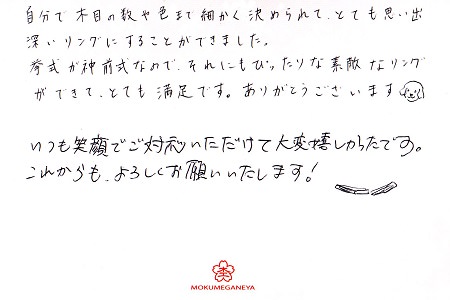 自分で木目の数や色まで細かく決められて、とても思い出
深いリングにすることができました。
挙式が神前式なので、それにもぴったりな素敵なリング
ができて、とても満足です。ありがとうございます
いつも笑顔でご対応いただけて大変嬉しかったです。
これからも、よろしくお願いいたします!
MOKUMEGANEYA